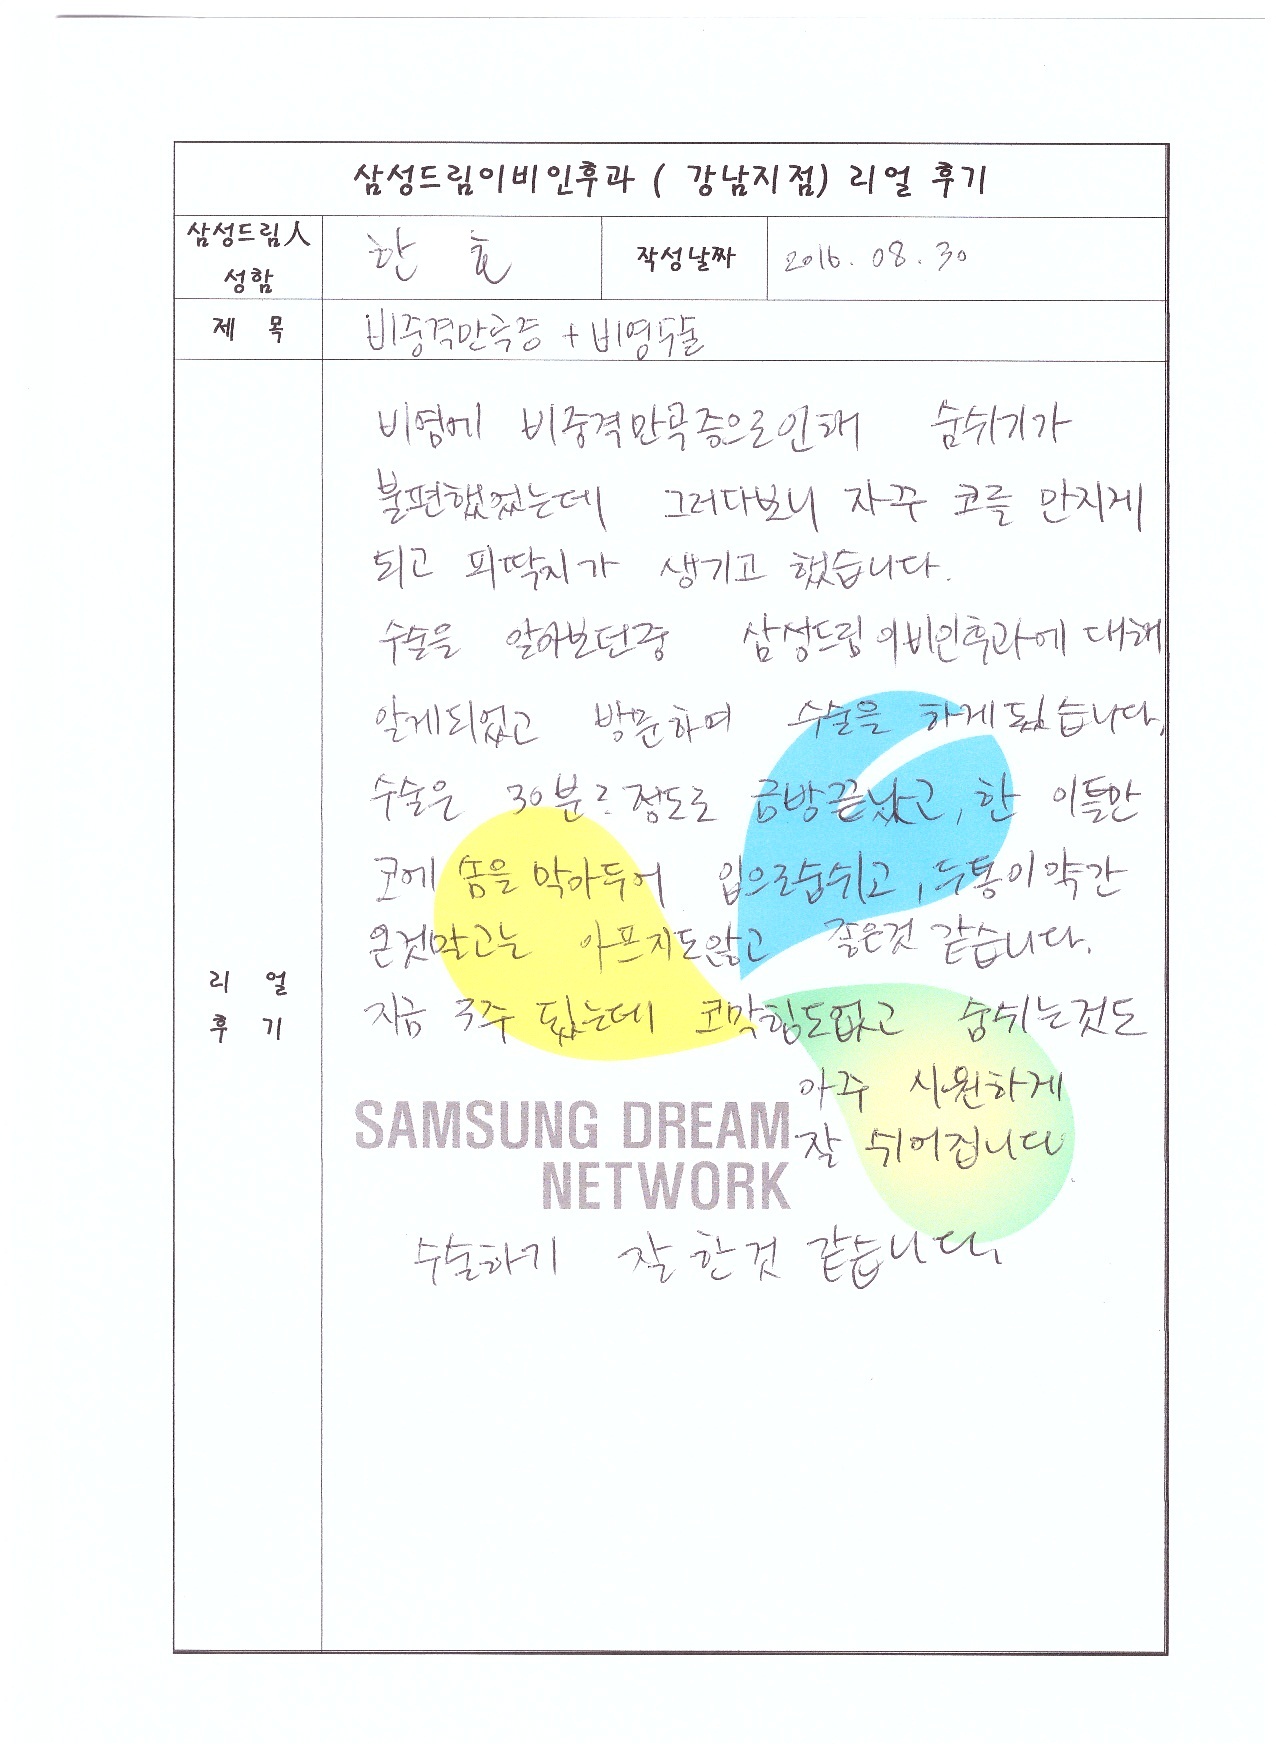 삼성드림이비인후과 ( 강남지점) 리얼 후기
삼성드림人
성함
한 호
작성날짜
2016. 08. 30
제 목
비중격만곡증 + 비염수술
비염에 비중격만곡증으로인해 숨쉬기가
불편했었는데 그러다보니 자꾸 코를 만지게
되고 피딱지가 생기고 했습니다.
수술을 알아보던중 삼성드림이비인후과에 대해
알게되었고 방문하여 수술을 하게됬습니다.
수술은 30분?정도로 금방끝났고, 한 이틀만
코에 솜을 막아두어 입으로숨쉬고, 두통이약간
온것말고는 아프지도않고 좋은것 같습니다.
지금 3주 됬는데 코막힘도없고 숨쉬는것도
아주 시원하게
잘 쉬어집니다
수술하기 잘 한것 같습니다.
리 얼
후 기
SAMSUNG DREAM
NETWORK